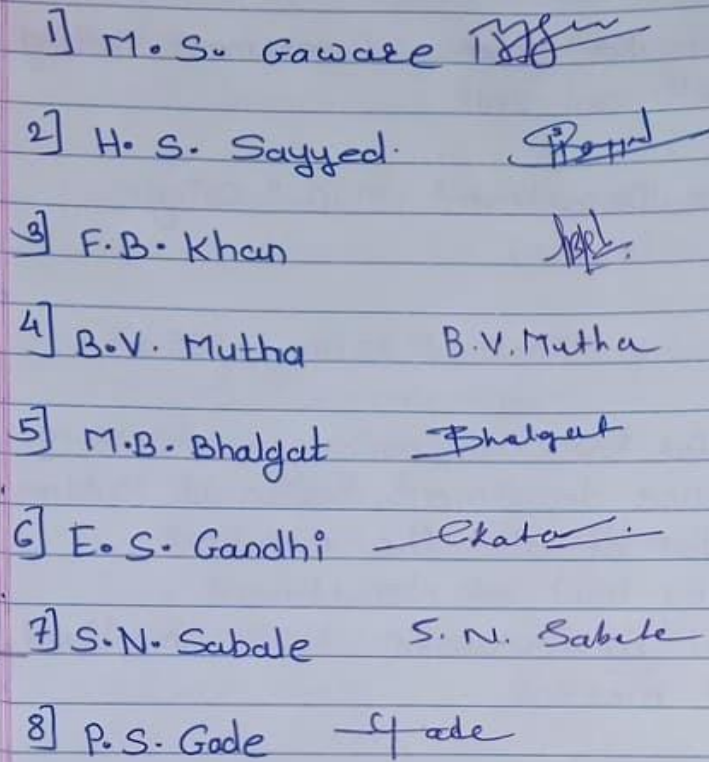 1] M. S. Gaware
2] H. S. Sayyed.
3] F.B. Khan
4] B.V. Mutha B.V. Mutha
5] M.B. Bhalgat Bhalgat
6] E. S. Gandhi Ekata
7] S.N. Sabale S. N. Sabale
8] P. S. Gade Gade